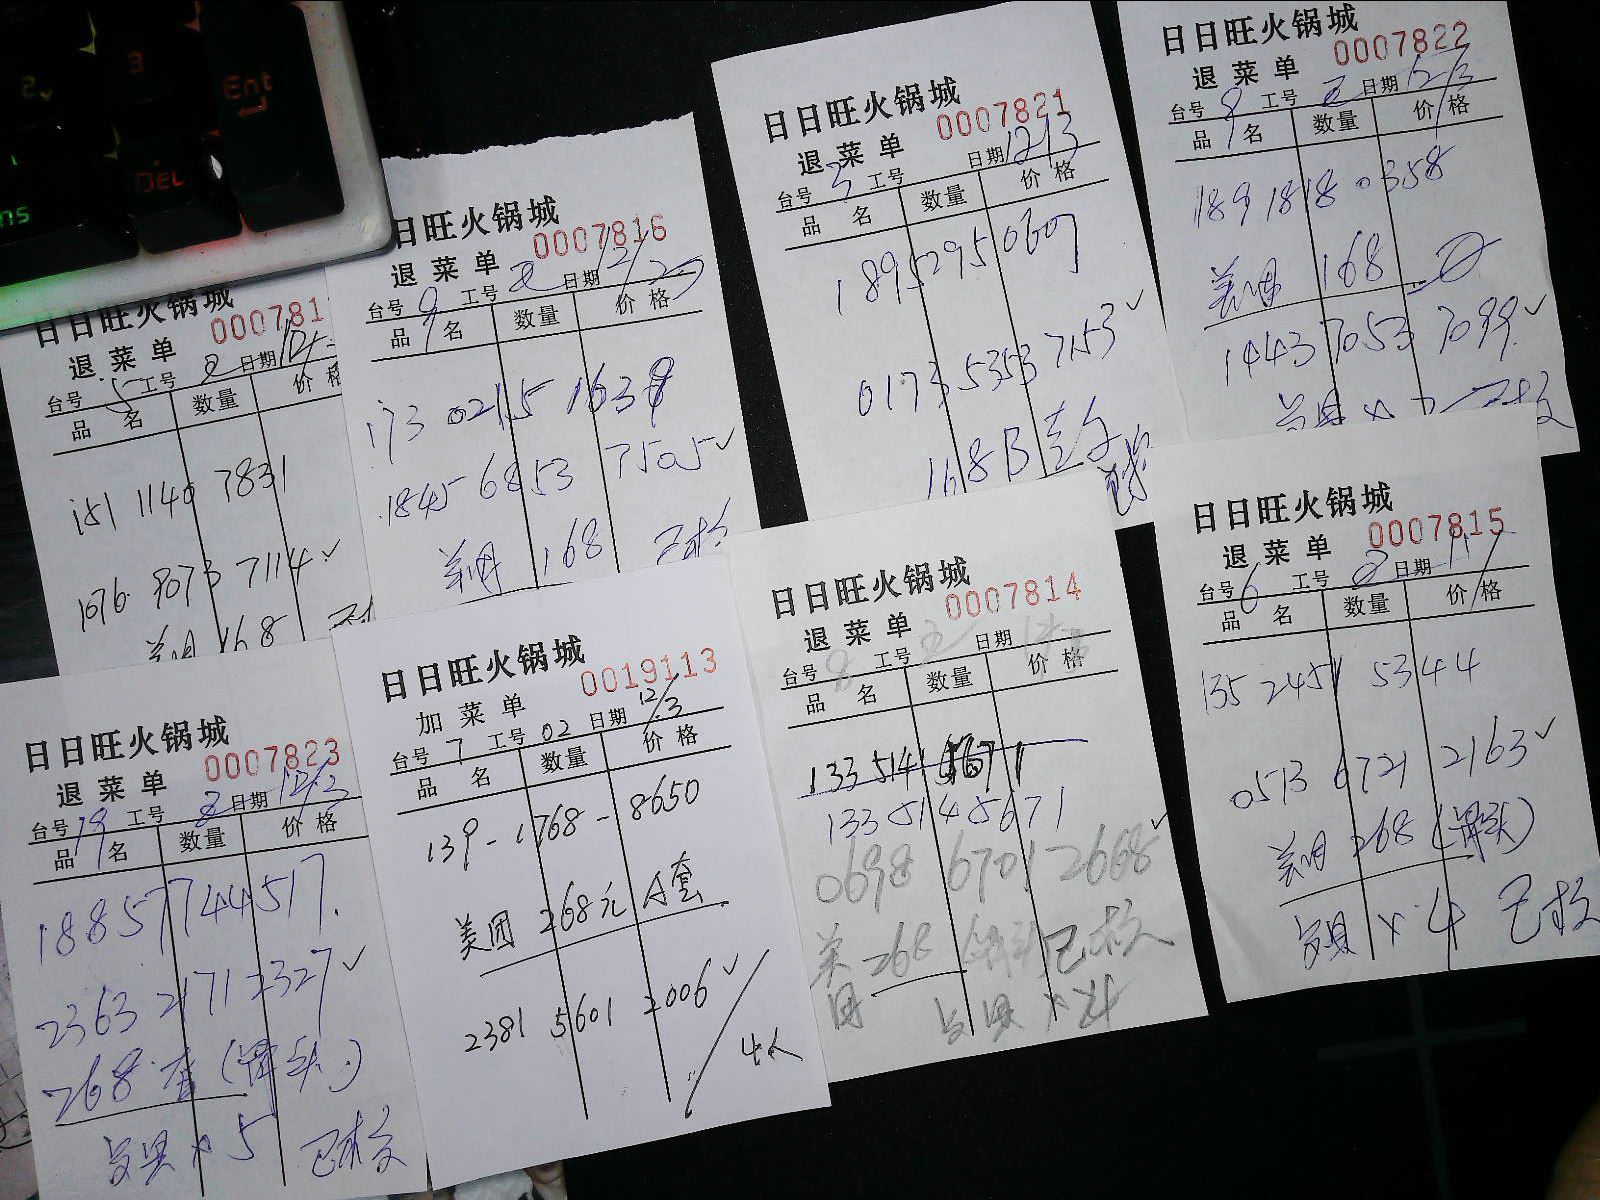 Ent
DEL
日日旺火锅城
000781
退菜单
台号 5 工号 日期
品名 数量 价格
151 1140 7831
1076 9073 7114✓
美团 168
日旺火锅城
0007816
退菜单
台号 9 工号 日期 12/2
品名 数量 价格
173 0215 1638
1845 6853 7505✓
美团 168 已核
日日旺火锅城
0007821
退菜单
台号 3 工号 日期 12/3
品名 数量 价格
189 5295 0607
0173 5353 7153✓
168B套
日日旺火锅城
0007822
退菜单
台号 9 工号 日期 12/3
品名 数量 价格
189 1818 0358
美团 168
1443 7053 7099✓
已核
日日旺火锅城
0007823
退菜单
台号 19 工号 日期 12/3
品名 数量 价格
18857744517
2363 2171 2327✓
268套(骨头)
餐具×5 已核
日日旺火锅城
0019113
加菜单
台号 7 工号 02 日期 12/3
品名 数量 价格
139-1768-8650
美团 268元A套
2381 5601 2006✓
4人
日日旺火锅城
0007814
退菜单
台号 8 工号 日期
品名 数量 价格
133 5145671
0698 6701 2668✓
美团 268 已核
日日旺火锅城
0007815
退菜单
台号 6 工号 日期
品名 数量 价格
135 2451 5344
0513 6721 2163✓
美团 268(骨头)
餐具×4 已核